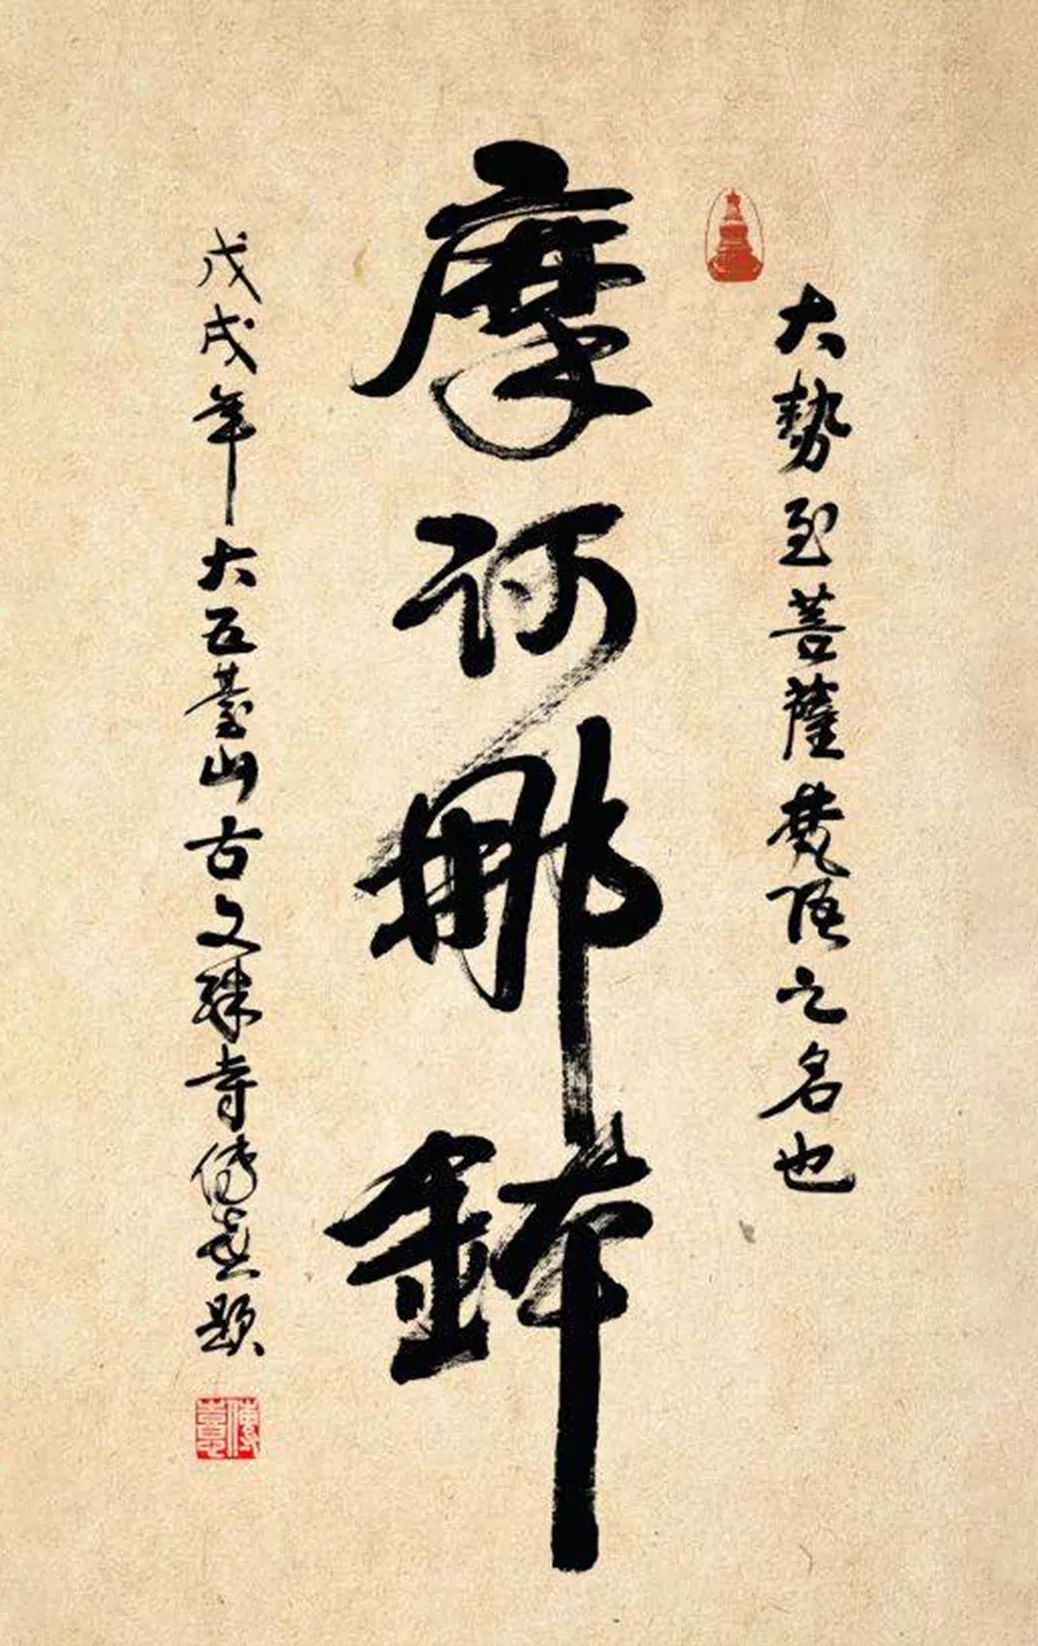 大勢至菩薩梵語之名也
摩訶那鉢
戊戌年大五臺山古文殊寺傳喜題